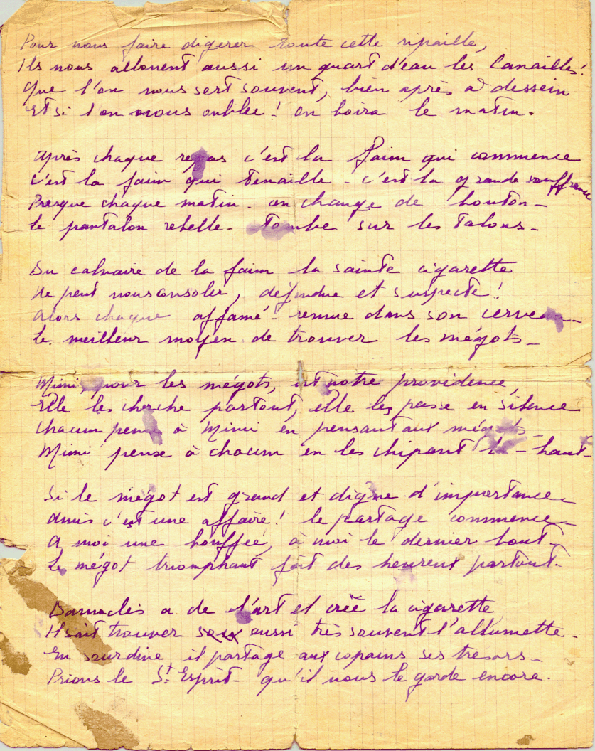 Pour nous faire digerer toute cette ripaille,
Ils nous allouent aussi un quart d'eau les canailles!
Que l'on nous sert souvent, bien après à dessein
Et si l'on nous oublie! on boira le matin.
Après chaque repas c'est la faim qui commence
C'est la faim qui tenaille - c'est la grande souffrance
Presque chaque matin - on change de bouton -
Le pantalon rebelle - tombe sur les talons -
Du calvaire de la faim la sainte cigarette
Ne peut nous consoler, défendue et suspecte!
Alors chaque affamé - remue dans son cerveau -
Le meilleur moyen de trouver les mégots -
Mimi, pour les mégots, est notre providence,
Elle les cherche partout, elle les passe en silence
Chacun pense à Mimi en pensant aux mégots -
Mimi pense à chacun en les chipant là-haut -
Si le mégot est grand et digne d'importance -
Amis c'est une affaire! le partage commence -
A moi une bouffée, à moi le dernier bout -
Le mégot triomphant fait des heureux partout.
Damoclès a de l'art et crée la cigarette
Il sait trouver aussi très souvent l'allumette -
En sourdine il partage aux copains ses tresors -
Prions le St Esprit qu'il nous le garde encore.